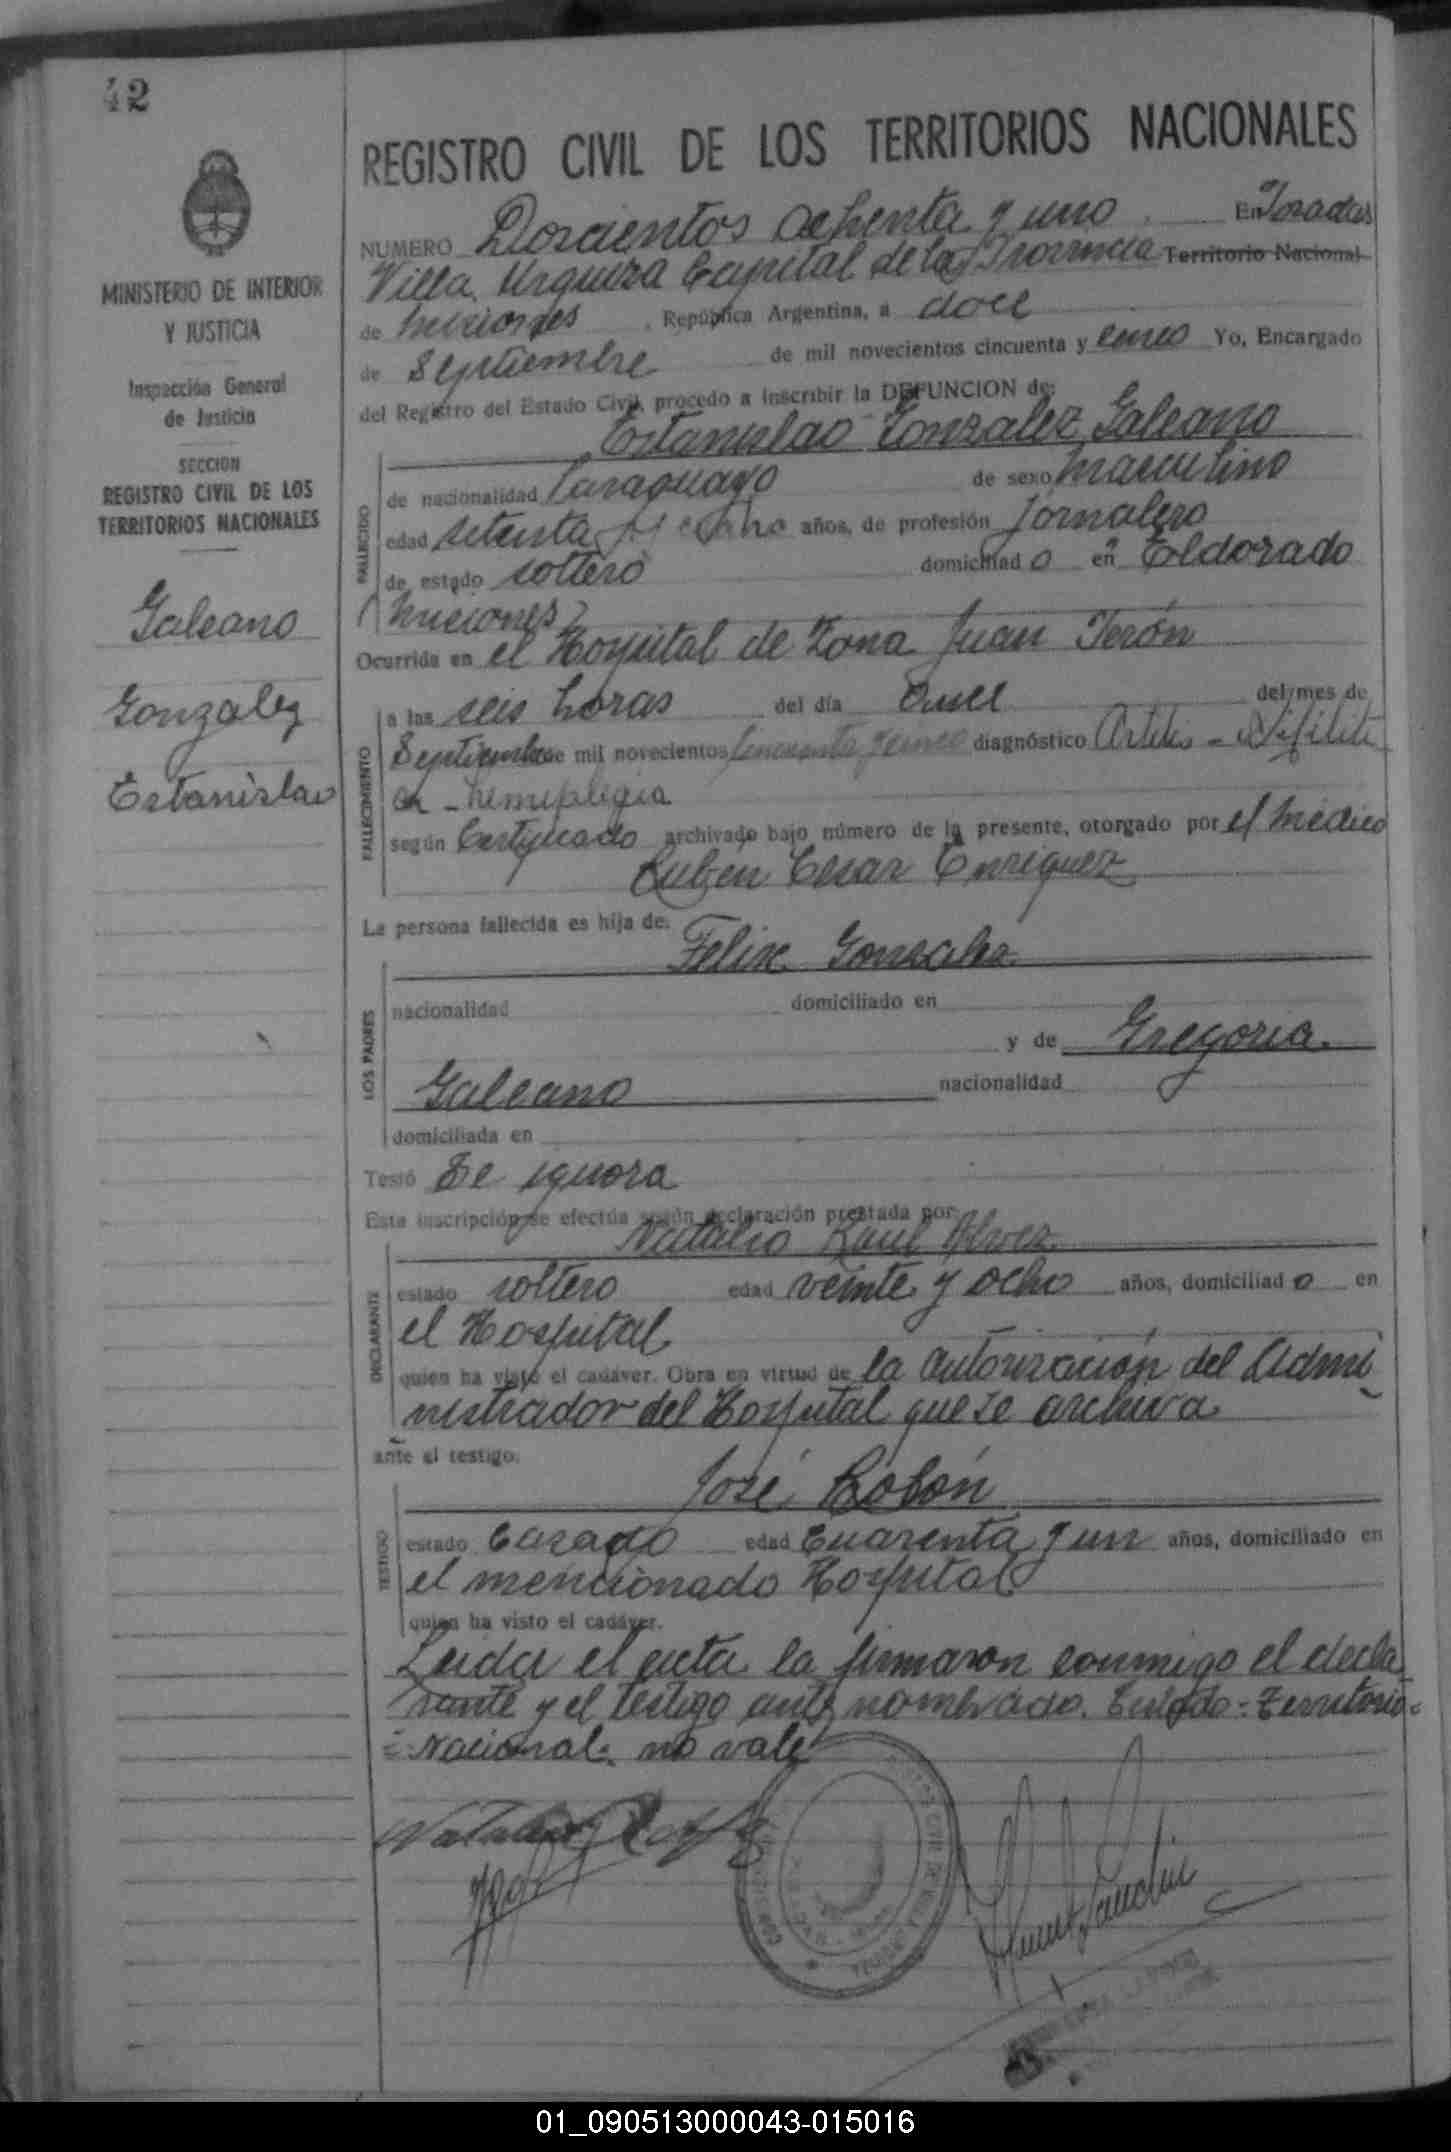 42
MINISTERIO DE INTERIOR
Y JUSTICIA
Inspección General
de Justicia
SECCION
REGISTRO CIVIL DE LOS
TERRITORIOS NACIONALES
Galeano
Gonzalez
Estanislao
REGISTRO CIVIL DE LOS TERRITORIOS NACIONALES
NUMERO Doscientos ochenta y uno En Posadas
Villa Urquiza Capital de la Provincia Territorio Nacional
de Misiones, República Argentina, a doce
de Septiembre de mil novecientos cincuenta y cinco Yo, Encargado
del Registro del Estado Civil, procedo a inscribir la DEFUNCION de:
Estanislao Gonzalez Galeano
FALLECIDO
de nacionalidad Paraguayo de sexo masculino
edad setenta y ocho años, de profesión Jornalero
de estado soltero domiciliado en Eldorado
(Misiones)
Ocurrida en el Hospital de Zona Juan Perón
FALLECIMIENTO
a las seis horas del día Once del mes de
Septiembre de mil novecientos cincuenta y cinco diagnóstico
ca - hemiplegia
según Certificado archivado bajo número de la presente, otorgado por el médico
Ruben Cesar Enriquez
La persona fallecida es hija de:
Felix Gonzalez
LOS PADRES
nacionalidad domiciliado en
y de Gregoria
Galeano nacionalidad
domiciliada en
Testó Se ignora
Esta inscripción se efectúa según declaración prestada por:
Natalio Raul Alvez
DECLARANTE
estado soltero edad veinte y ocho años, domiciliado en
el Hospital
quien ha visto el cadáver. Obra en virtud de la autorización del Admi
nistrador del Hospital que se archiva
ante el testigo:
José Colón
TESTIGO
estado Casado edad Cuarenta y un años, domiciliado en
el mencionado Hospital
quien ha visto el cadáver.
Leida el acta la firmaron conmigo el decla
rante y el testigo ante nombrado. Territorio
Nacional: no vale
01_090513000043-015016